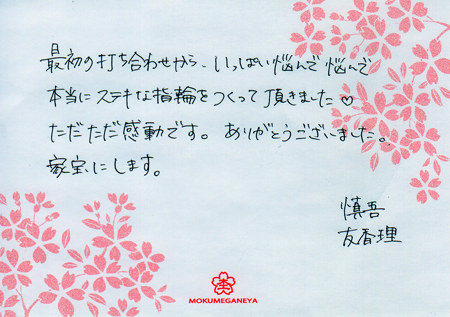 最初の打ち合わせから、いっぱい悩んで悩んで
本当にステキな指輪をつくって頂きました♡
ただただ感動です。ありがとうございました。
家宝にします。
慎吾
友香理
MOKUMEGANEYA